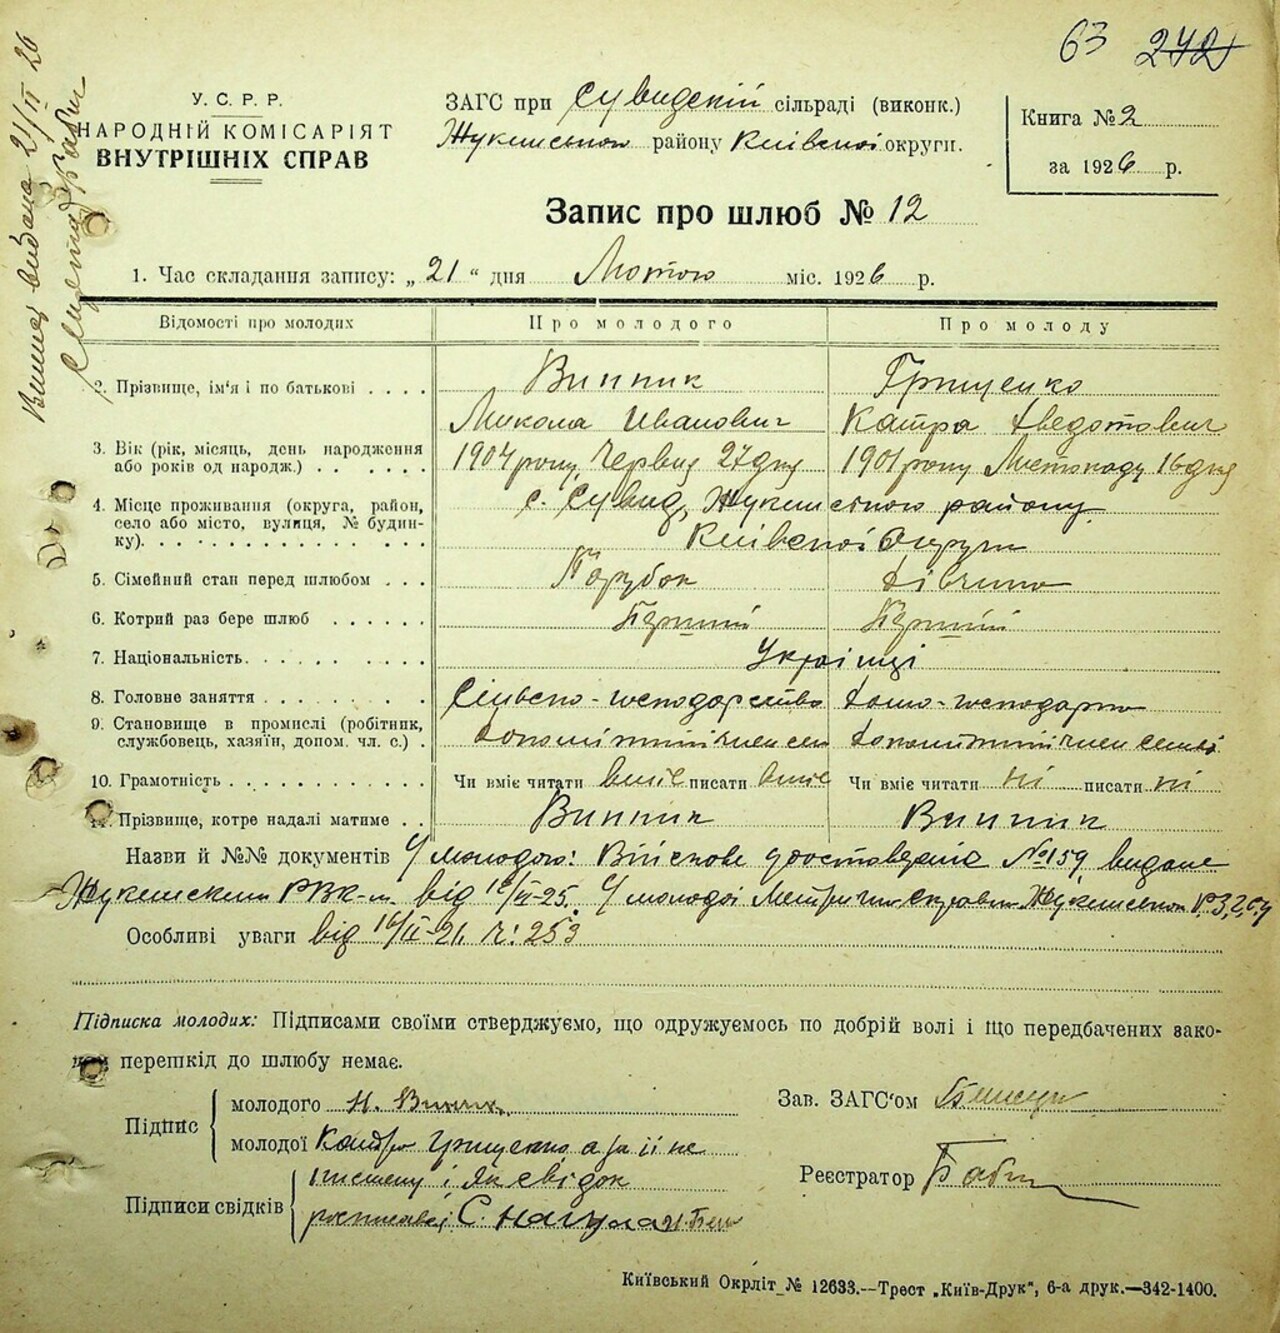 63 272
Випис видана 21/II 26
У. С. Р. Р.
НАРОДНІЙ КОМІСАРІЯТ
ВНУТРІШНІХ СПРАВ
ЗАГС при Сувидский сільраді (виконк.)
Жукинського району Київської округи.
Книга № 2
за 1926 р.
Запис про шлюб № 12
1. Час складання запису: „21“ дня Лютого міс. 1926 р.
Відомості про молодих Про молодого Про молоду
2. Прізвище, ім'я і по батькові . . . . Винник Грищенко
Микола Иванович Катра Хведотович
3. Вік (рік, місяць, день народження або років од народж.) . . . . . . 1904 року Червня 27 дня 1901 року Листопаду 16 дня
4. Місце проживання (округа, район, село або місто, вулиця, № будинку). с. Сувид, Жукинського району
Київської Округи
5. Сімейний стан перед шлюбом . . . Парубок Дівчина
6. Котрий раз бере шлюб . . . . . . Перший Перший
7. Національність. Українці
8. Головне заняття Сільсько-господарство домо-господарка
9. Становище в промислі (робітник, службовець, хазяїн, допом. чл. с.) . допомітний член сем допомітний член семьї
10. Грамотність Чи вміє читати вміє писати вміє Чи вміє читати ні писати ні
11. Прізвище, котре надалі матиме . . Винник Винник
Назви й №№ документів У молодого: Війскове удостоверенія №159 видане
Жукинским РВК-м від 12/II-25. У молодої Метрична справка Жукинського
Особливі уваги від 16/II-21. ч: 253
Підписка молодих: Підписами своїми стверджуємо, що одружуємось по добрій волі і що передбачених законом перешкід до шлюбу немає.
Підпис
молодого Н. Винник
молодої Катря Грищенко а за її не
Підписи свідків
письмену і як свідок
росписався С. Нагула
Зав. ЗАГС'ом
Реєстратор
Київський Окрліт № 12633.—Трест „Київ-Друк“, 6-а друк.—342-1400.